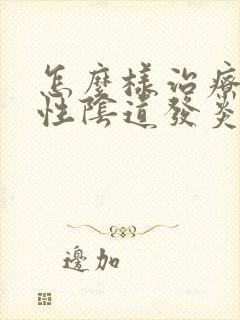 怎麼樣治療
性陰道發炎
邊加